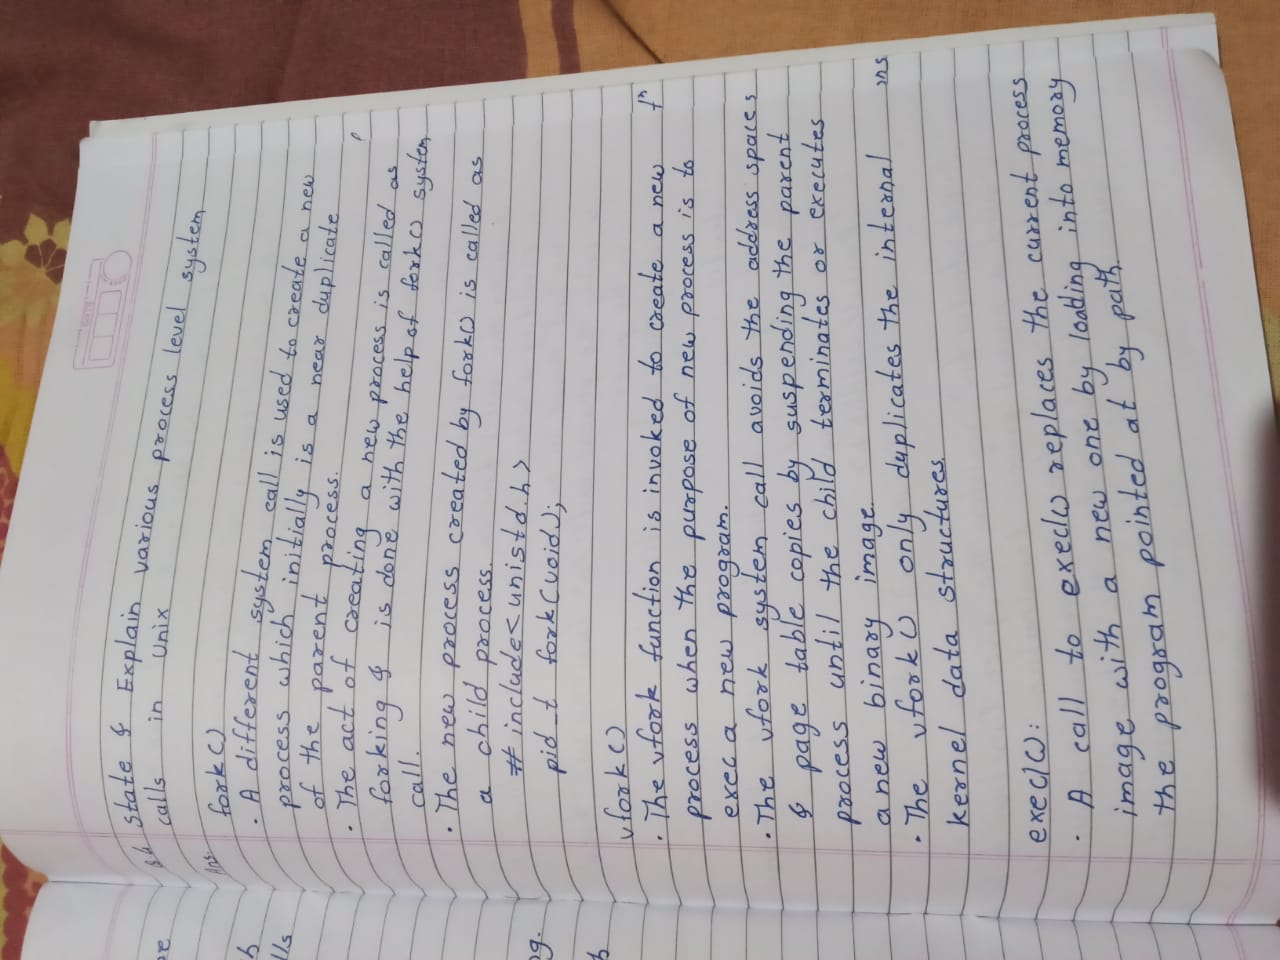 Q.4 State & Explain various process level system
calls in unix
Ans. fork()
• A different system call is used to create a new
process which initially is a near duplicate
of the parent process.
• The act of creating a new process is called as
forking & is done with the help of fork() system
call.
• The new process created by fork() is called as
a child process.
# include<unistd.h>
pid_t fork(void);
vfork()
• The vfork function is invoked to create a new
process when the purpose of new process is to
exec a new program.
• The vfork system call avoids the address spaces
& page table copies by suspending the parent
process until the child terminates or executes
a new binary image.
• The vfork() only duplicates the internal
kernel data structures.
execl():
• A call to execl() replaces the current process
image with a new one by loading into memory
the program pointed at by path.
lls
ng.